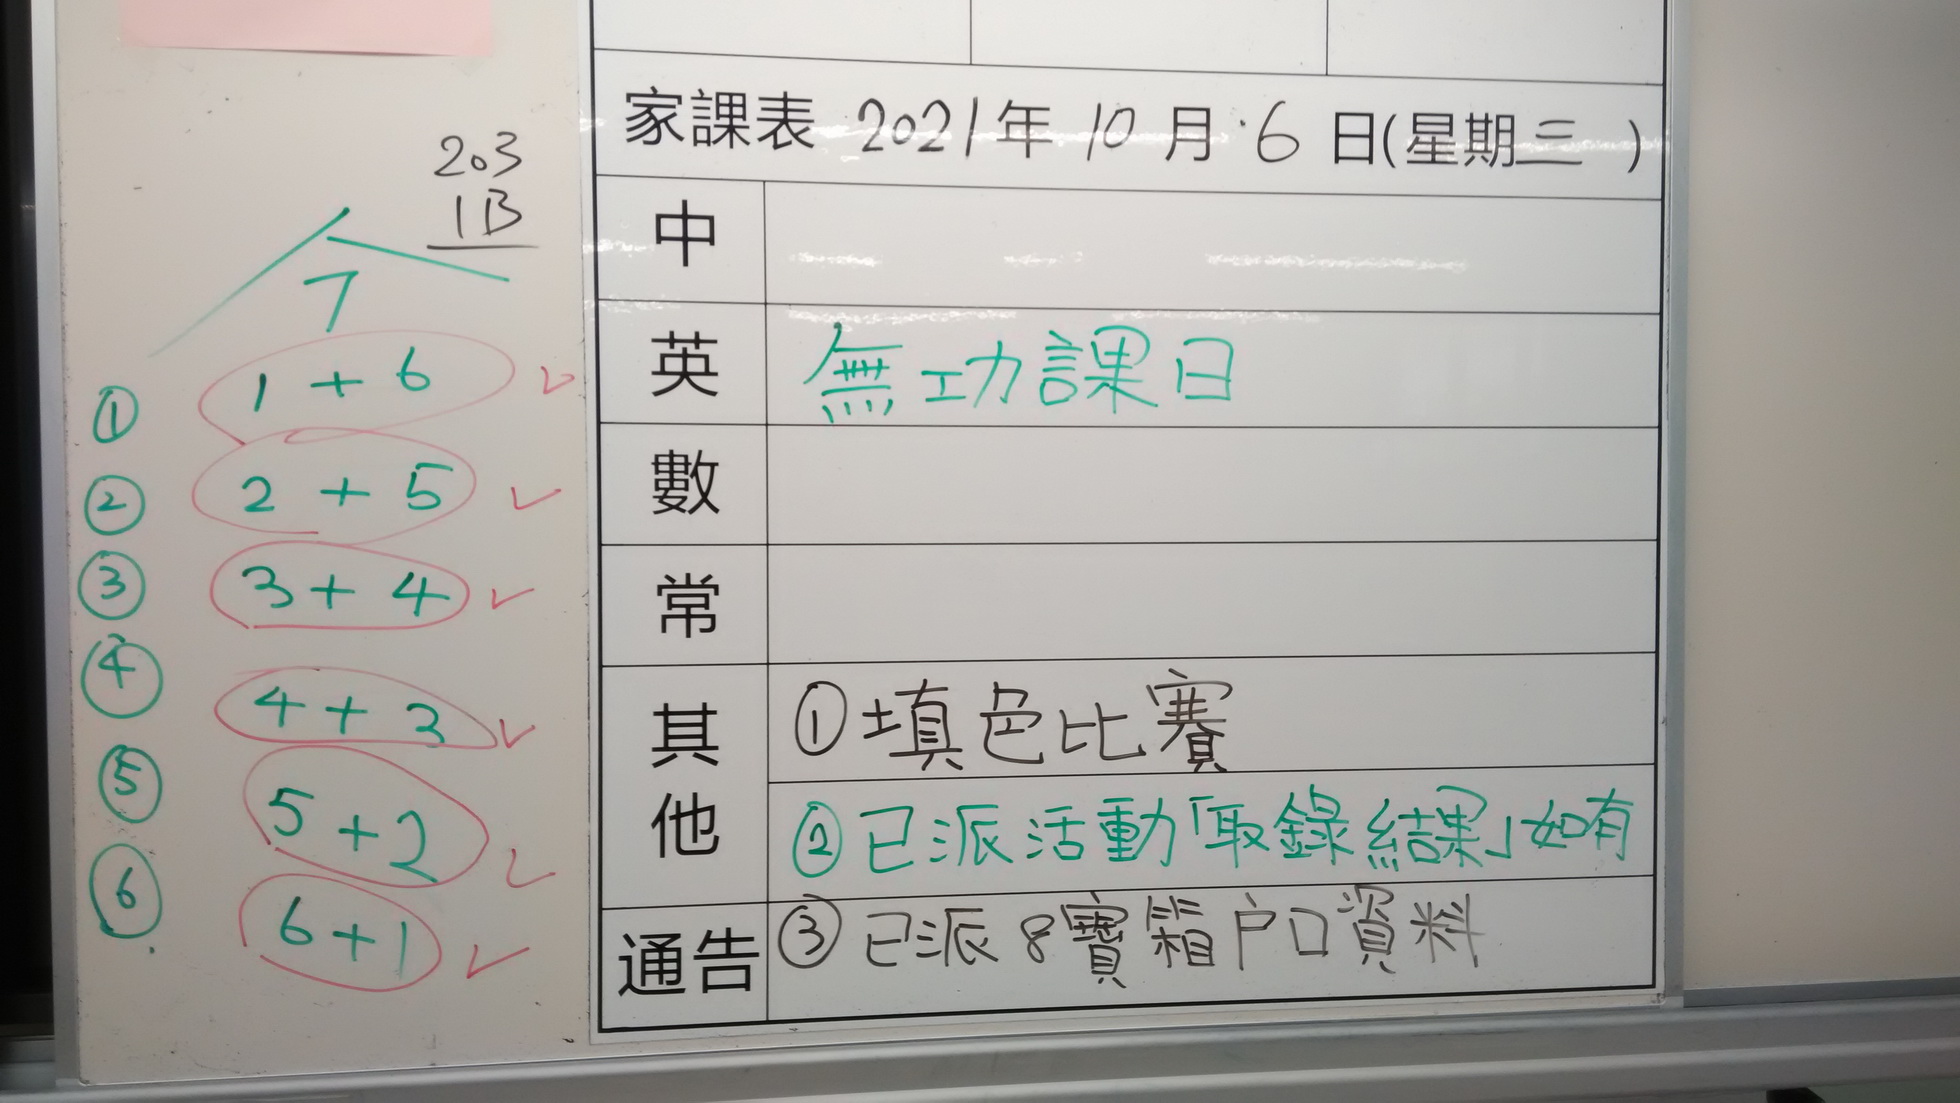 203
1B
7
① 1 + 6 ✓
② 2 + 5 ✓
③ 3 + 4 ✓
④ 4 + 3 ✓
⑤ 5 + 2 ✓
⑥ 6 + 1 ✓
家課表 2021年 10月 6日(星期三)
中
英 無功課日
數
常
其他 ①填色比賽
②已派活動「取錄結果」如有
通告 ③已派8寶箱户口資料